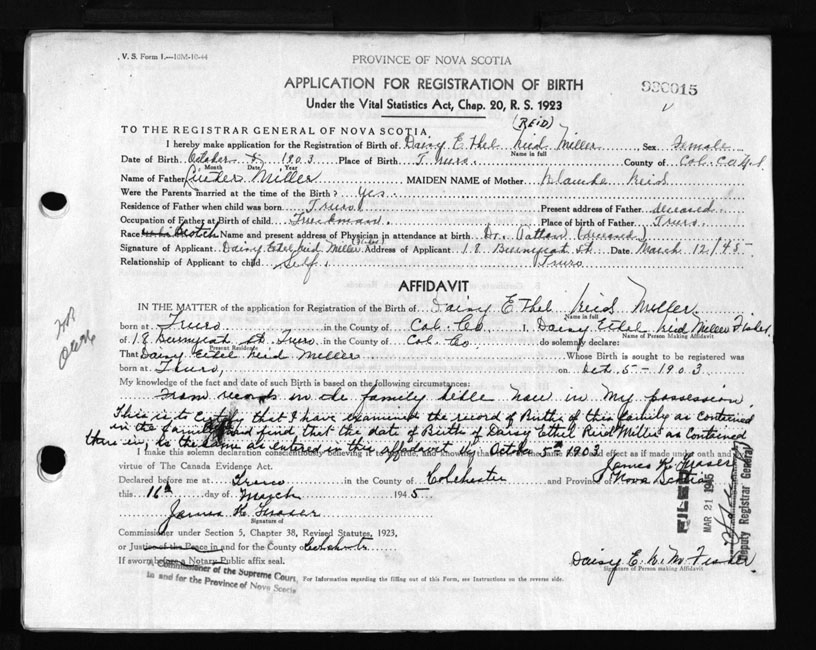 V. S. Form 1.—10M-10-44
PROVINCE OF NOVA SCOTIA
APPLICATION FOR REGISTRATION OF BIRTH
Under the Vital Statistics Act, Chap. 20, R. S. 1923
(REID)
TO THE REGISTRAR GENERAL OF NOVA SCOTIA
I hereby make application for the Registration of Birth of Daisy Ethel Reid Miller Sex Female
Name in full
Date of Birth October 5 1903 Place of Birth Truro County of Col. Co. N.S
Month Date Year
Name of Father Luther Miller MAIDEN NAME of Mother Blanche Reid
Were the Parents married at the time of the Birth? yes
Residence of Father when child was born Truro Present address of Father deceased
Occupation of Father at Birth of child Truckman Place of birth of Father Truro
Race Scotch Name and present address of Physician in attendance at birth Dr. Patton deceased
Signature of Applicant Daisy Ethel Reid Miller Address of Applicant 18 St Date March 12/45
Relationship of Applicant to child Self Truro
AFFIDAVIT
IN THE MATTER of the application for Registration of the Birth of Daisy Ethel Reid Miller
Name in full
born at Truro in the County of Col. Co I, Daisy Ethel Reid Miller Fisher
Name of Person Making Affidavit
of 18 St. Truro in the County of Col. Co do solemnly declare:
Present Residence
That Daisy Ethel Reid Miller Whose Birth is sought to be registered was
born at Truro, on Oct. 5 - 1903
My knowledge of the fact and date of such Birth is based on the following circumstances:
From records in the family bible now in my possession
This is to certify that I have examined the record of Births of this family as contained
in the family and find that the date of Birth of Daisy Ethel Reid Miller as contained
there in, is the same as entered in the affidavit viz October 5th 1903
I make this solemn declaration conscientiously believing it effect as if made under oath and
virtue of The Canada Evidence Act.
James H. Fraser
Declared before me at Truro in the County of Colchester and Province of Nova Scotia
this 16th day of March 1945
James H Fraser
Signature of
Commissioner under Section 5, Chapter 38, Revised Statutes, 1923,
or Justice of the Peace in and for the County Colchester
If sworn before a Notary Public affix seal.
A Commissioner of the Supreme Court
in and for the Province of Nova Scotia
For Information regarding the filling out of this Form, see Instructions on the reverse side.
Daisy E. R. M. Fisher
Signature of Person making Affidavit
FILED
MAR 21 1945
Deputy Registrar General